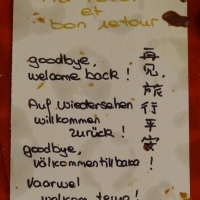 et
bon retour
goodbye,
welcome back!
Auf Wiedersehen
willkommen
zurück!
goodbye,
Välkommen tillbaka!
Vaarwel
welkom terug!
再见,旅行平安!